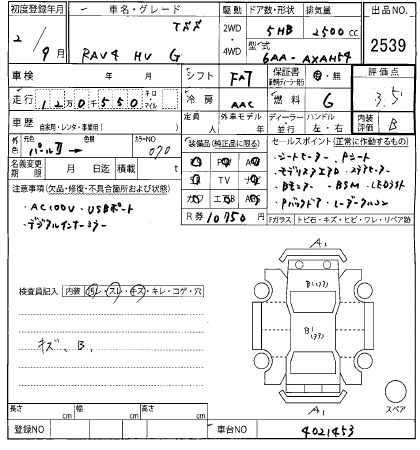 初度登録年月 車名・グレード 駆動 ドア数・形状 排気量 出品NO
2WD・4WD 5HB 2500cc
2/9月 RAV4 HV G 型式 6AA-AXAH54 2539
車検 年 月 シフト FAT 保証書 有・無 評価点
走行 1万0千550キロ・マイル 冷房 AAC 燃料 G 3.5
車歴 自家用・レンタ・事業用( ) 定員 人 外車モデル 年 ディーラー 並行 ハンドル 左・右 内装評価 B
外色 元色 パールII 色替 カラーNO 070
名義変更期限 月 日迄 積載 t
装備品(純正品に限る)
TV
R券 10750円
セールスポイント(正常に作動するもの)
・シートヒーター ・Pシート
・BSM ・LEDライト
・Pバックドア ・レーダークルコン
注意事項(欠品・修復・不具合箇所および状態)
・AC100V ・USBポート
・デジタルインナーミラー
Fガラス トビ石・キズ・ヒビ・ワレ・リペア跡
検査員記入 内装 汚レ・スレ・キズ・キレ・コゲ・穴
キズ、B1
A1
B1(ウラ)
A1
スペア
長さ cm 幅 cm 高さ cm
登録NO 車台NO 4021453